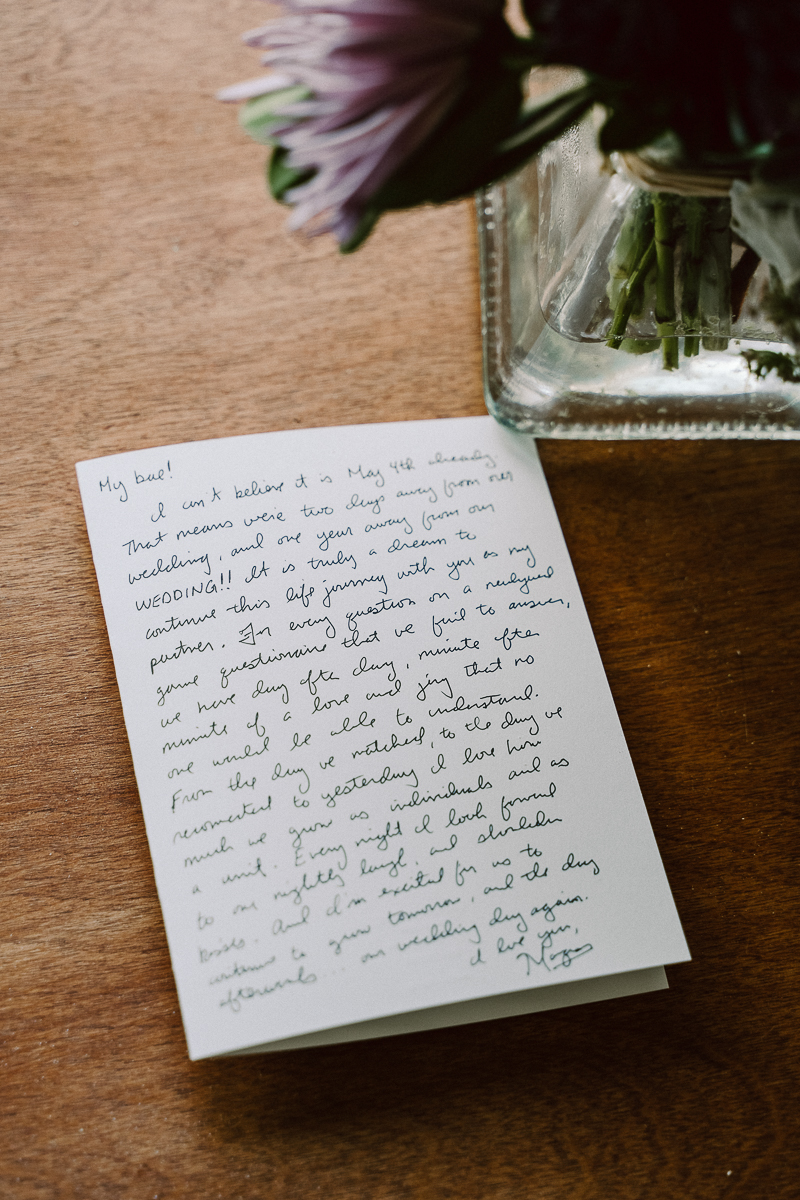 My bae!
I can't believe it is May 4th already.
That means we're two days away from our
wedding, and one year away from our
WEDDING!! It is truly a dream to
continue this life journey with you as my
partner. For every question on a newlywed
game questionaire that we fail to answer,
we have day after day, minute after
minute of a love and joy that no
one would be able to understand.
From the day we matched, to the day we
reconnected to yesterday I love how
much we grow as individuals and as
a unit. Every night I look forward
to our nightly laugh, and shoulder
kisses. And I'm excited for us to
continue to grow tomorrow, and the day
afterwards... our wedding day again.
I love you,